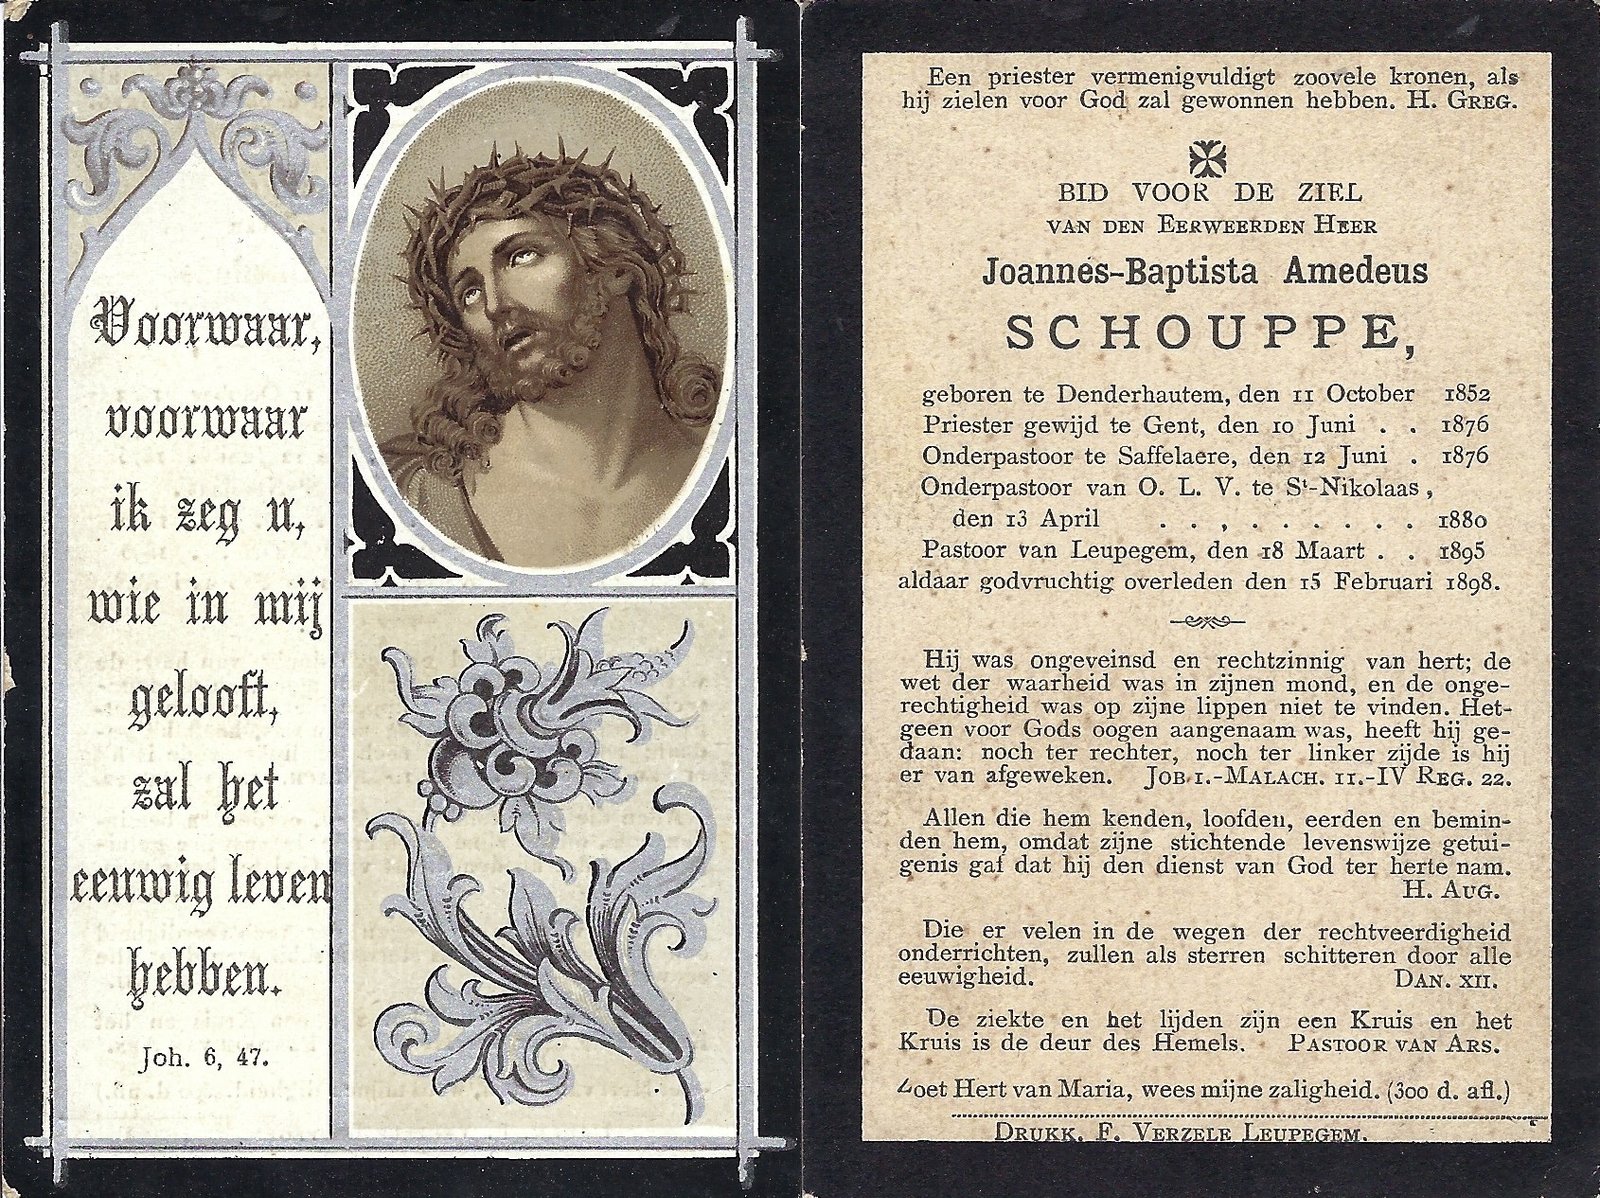 Voorwaar,
voorwaar
ik zeg u,
wie in mij
gelooft,
zal het
eeuwig leven
hebben.
Joh. 6, 47.
Een priester vermenigvuldigt zoovele kronen, als
hij zielen voor God zal gewonnen hebben. H. GREG.
BID VOOR DE ZIEL
VAN DEN EERWEERDEN HEER
Joannes-Baptista Amedeus
SCHOUPPE,
geboren te Denderhautem, den 11 October 1852
Priester gewijd te Gent, den 10 Juni . . 1876
Onderpastoor te Saffelaere, den 12 Juni . 1876
Onderpastoor van O. L. V. te St-Nikolaas,
den 13 April . . , . . . . . . . 1880
Pastoor van Leupegem, den 18 Maart . . 1895
aldaar godvruchtig overleden den 15 Februari 1898.
Hij was ongeveinsd en rechtzinnig van hert; de
wet der waarheid was in zijnen mond, en de onge-
rechtigheid was op zijne lippen niet te vinden. Het-
geen voor Gods oogen aangenaam was, heeft hij ge-
daan: noch ter rechter, noch ter linker zijde is hij
er van afgeweken. JOB I.-MALACH. II.-IV REG. 22.
Allen die hem kenden, loofden, eerden en bemin-
den hem, omdat zijne stichtende levenswijze getui-
genis gaf dat hij den dienst van God ter herte nam.
H. AUG.
Die er velen in de wegen der rechtveerdigheid
onderrichten, zullen als sterren schitteren door alle
eeuwigheid. DAN. XII.
De ziekte en het lijden zijn een Kruis en het
Kruis is de deur des Hemels. PASTOOR VAN ARS.
Zoet Hert van Maria, wees mijne zaligheid. (300 d. afl.)
DRUKK. F. VERZELE LEUPEGEM.